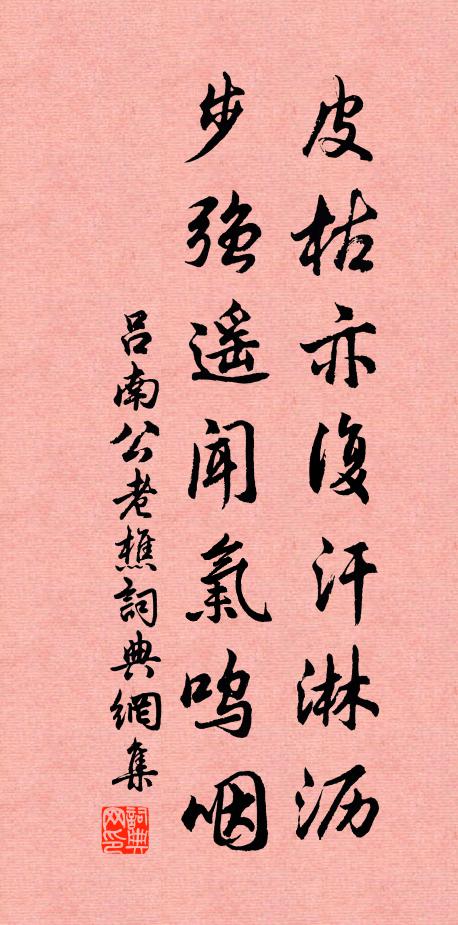 皮枯亦復汗淋沥
步強遥闻氣鸣咽
吕南公老樵詞典網集
詞典网印